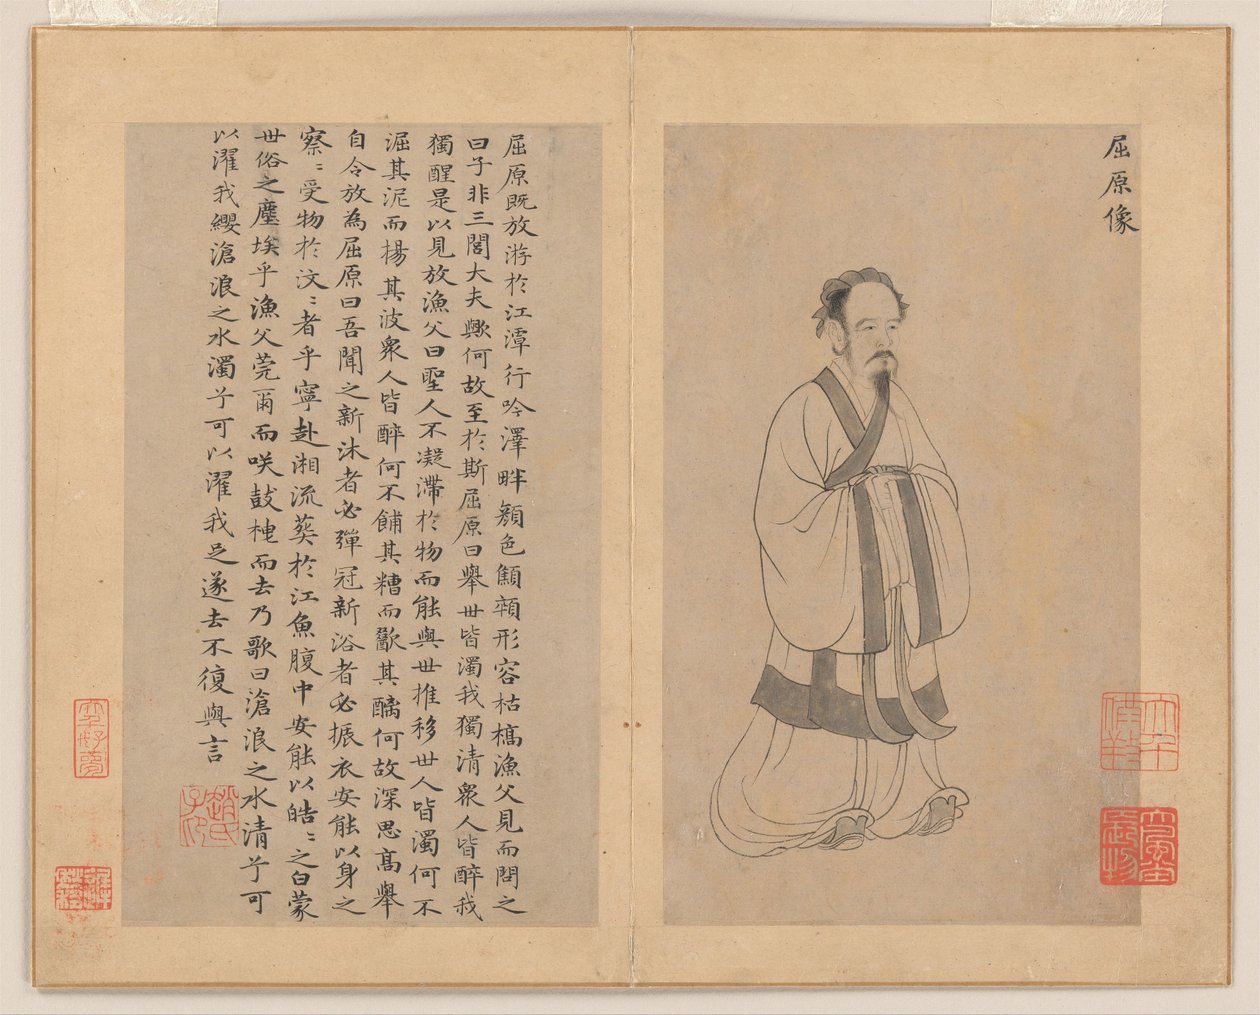 屈原像
屈原既放游於江潭行吟澤畔顏色顦顇形容枯槁漁父見而問之
曰子非三閭大夫歟何故至於斯屈原曰舉世皆濁我獨清衆人皆醉我
獨醒是以見放漁父曰聖人不凝滯於物而能與世推移世人皆濁何不
淈其泥而揚其波衆人皆醉何不餔其糟而歠其醨何故深思高舉
自令放為屈原曰吾聞之新沐者必彈冠新浴者必振衣安能以身之
察〻受物於汶〻者乎寧赴湘流葬於江魚腹中安能以皓〻之白蒙
世俗之塵埃乎漁父莞爾而咲鼓枻而去乃歌曰滄浪之水清兮可
以濯我纓滄浪之水濁兮可以濯我足遂去不復與言
趙氏子印